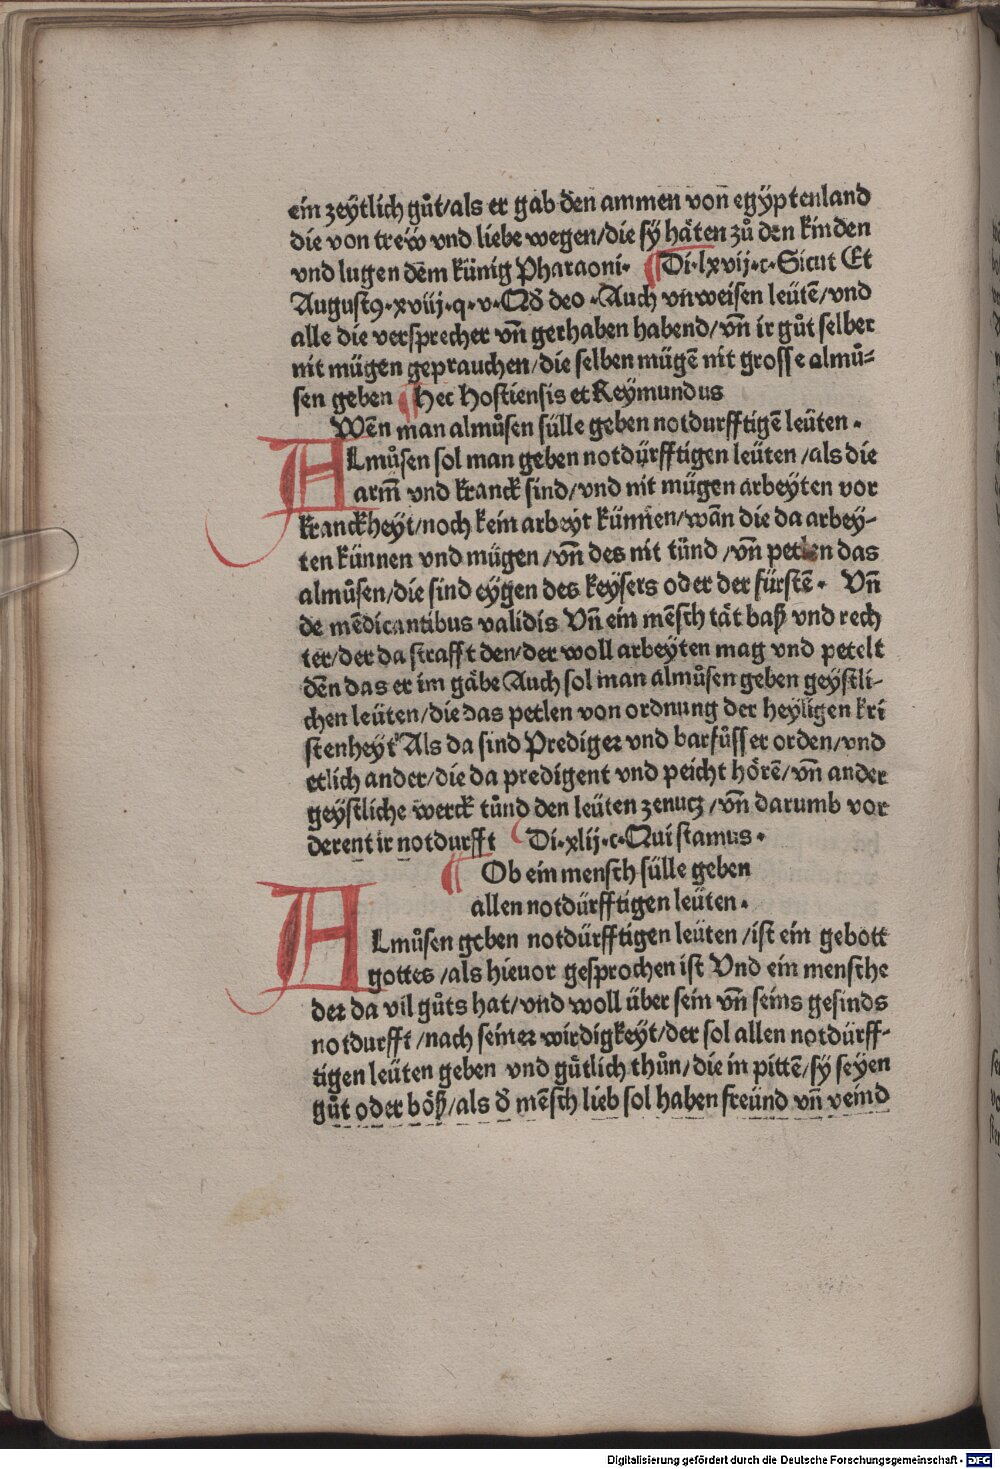 ein zeÿtlich gůt/als er gab den ammen von̄ egÿptenland
die von trew̎ vnd liebe wegen/die sÿ häten zů den kinden
vnd lugen dem künig Pharaoni· ¶Di·lxvij·c·Sicut Et
Augustꝰ·xviij·q·v·Qd̓ deo ·Auch vnweisen leütē/vnd
alle die versprecher vn̄ gerhaben habend/vn̄ ir gůt selber
nit mügen geprauchen/die selben mügē nit grosse almů⸗
sen geben ¶Hec Hostiensis et Reÿmundus
Wēn man almůsen sülle geben notdurfftigē leüten·
ALmůsen sol man geben notdürfftigen leüten/als die
arm̄ vnd kranck sind/vnd nit mügen arbeÿten vor
kranckheÿt/noch kein arbeyt künnen/wān die da arbey-
ten künnen vnd mügen/vn̄ des nit tůnd/vn̄ petlen das
almůsen/die sind eÿgen des keÿsers oder der fürstē· Vn̄
de mēdicantibus validis Vn̄ ein mēsch tät baß vnd rech
ter/der da strafft den/der woll arbeÿten mag vnd petelt
dēn das er im gäbe Auch sol man almůsen geben geÿstli-
chen leüten/die das petlen von ordnung der heyligen kri
stenheÿt Als da sind Prediger vnd barfůsser orden/vnd
etlich ander/die da predigent vnd peicht hörē/vn̄ ander
geÿstliche werck tůnd den leüten zenucz/vn̄ darumb vor
derent ir notdurfft ¶Di·xlij·c·Qui stamus·
¶ Ob ein mensch sülle geben
allen notdürfftigen leüten·
ALmůsen geben notdürfftigen leüten/ist ein gebott
gottes/als hieuor gesprochen ist Vnd ein mensche
der da vil gůts hat/vnd woll über sein vn̄ seins gesinds
notdurfft/nach seiner wirdigkeyt/der sol allen notdürff-
tigen leüten geben vnd gütlich thůn/die in pittē/sÿ seyen
gůt oder böß/als d̓ mēsch lieb sol haben freünd vn̄ veind
Digitalisierung gefördert durch die Deutsche Forschungsgemeinschaft - DFG